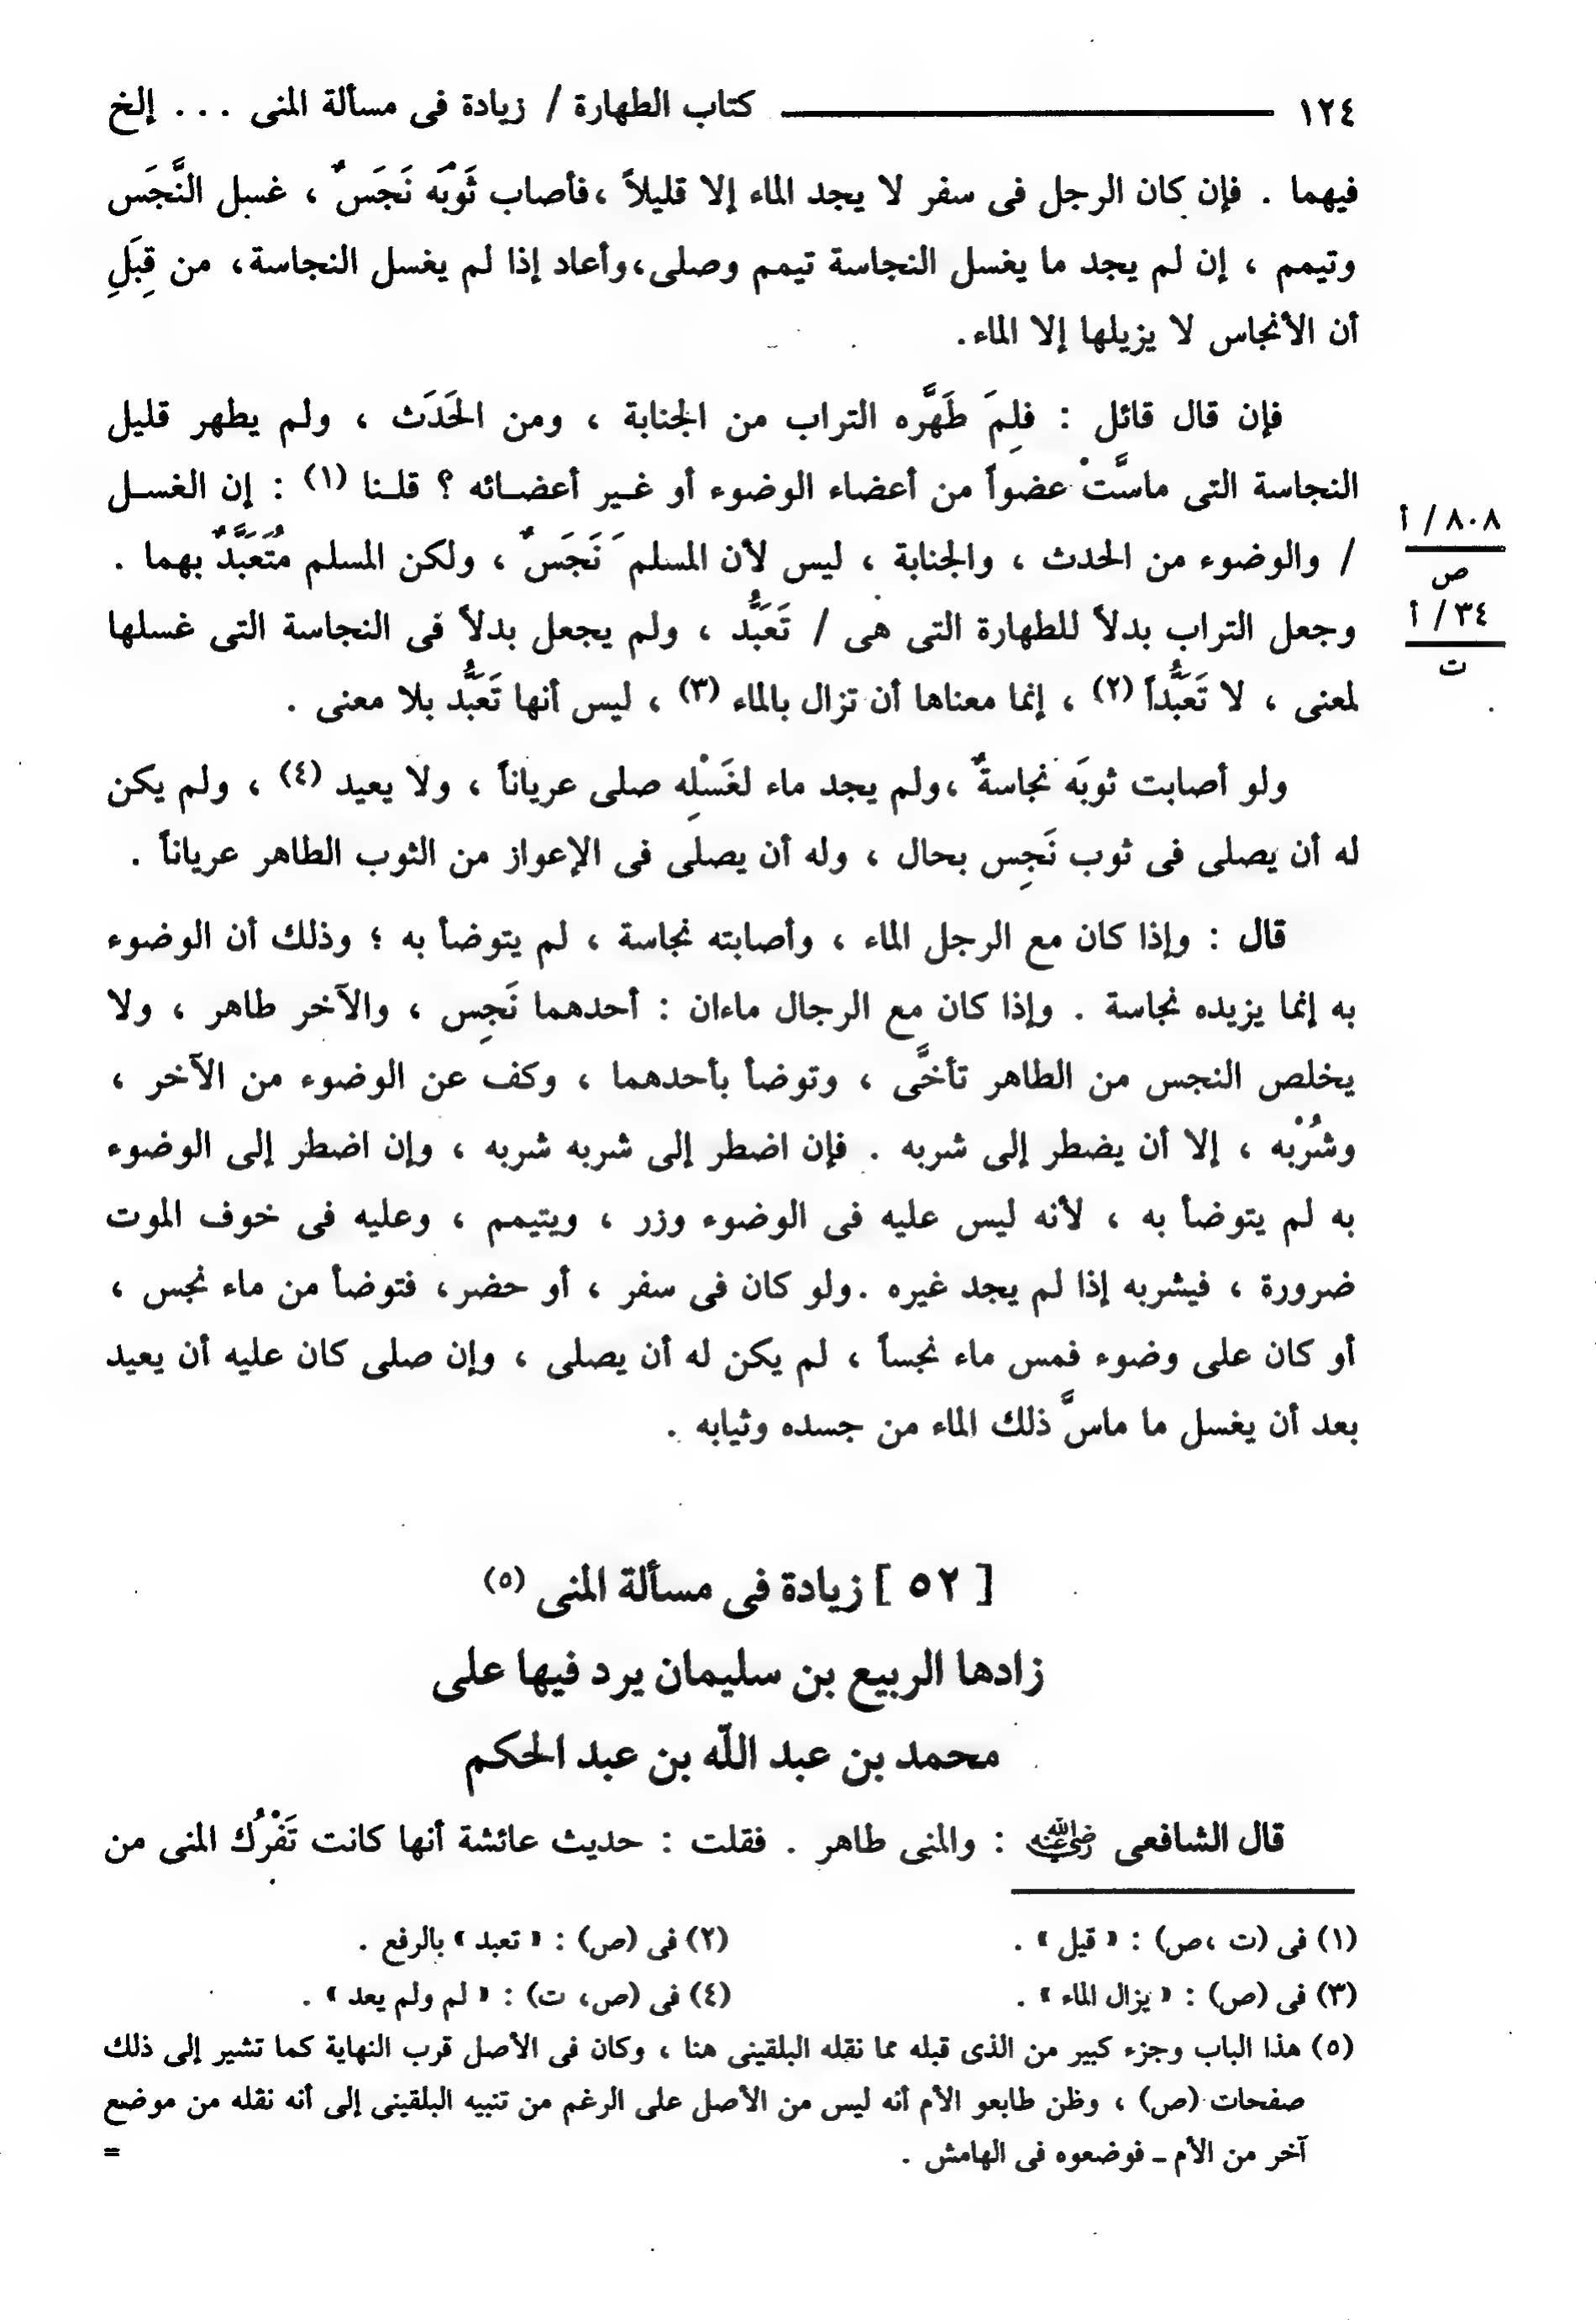 ١٢٤ كتاب الطهارة / زيادة فى مسألة المنى . . . إلخ
فيهما . فإن كان الرجل فى سفر لا يجد الماء إلا قليلاً ،فأصاب ثَوْبَه نَجَسٌ ، غسل النَّجَس
وتيمم ، إن لم يجد ما يغسل النجاسة تيمم وصلى،وأعاد إذا لم يغسل النجاسة، من قِبَلِ
أن الأنجاس لا يزيلها إلا الماء.
فإن قال قائل : فلِمَ طَهَّره التراب من الجنابة ، ومن الحَدَث ، ولم يطهر قليل
النجاسة التى ماسَّتْ عضواً من أعضاء الوضوء أو غير أعضائه ؟ قلنا (١) : إن الغسل
/ والوضوء من الحدث ، والجنابة ، ليس لأن المسلمَ نَجَسٌ ، ولكن المسلم مُتَعَبَّدٌ بهما .
٨٠٨/ أ
ص
وجعل التراب بدلاً للطهارة التى هى / تَعَبُّد ، ولم يجعل بدلاً فى النجاسة التى غسلها
٣٤/ أ
ت
لمعنى ، لا تَعَبُّداً (٢) ، إنما معناها أن تزال بالماء (٣) ، ليس أنها تَعَبُّد بلا معنى .
ولو أصابت ثوبَه نجاسةٌ ،ولم يجد ماء لغَسْلِه صلى عرياناً ، ولا يعيد (٤) ، ولم يكن
له أن يصلى فى ثوب نَجِس بحال ، وله أن يصلى فى الإعواز من الثوب الطاهر عرياناً .
قال : وإذا كان مع الرجل الماء ، وأصابته نجاسة ، لم يتوضأ به ؛ وذلك أن الوضوء
به إنما يزيده نجاسة . وإذا كان مع الرجال ماءان : أحدهما نَجِس ، والآخر طاهر ، ولا
يخلص النجس من الطاهر تأخَّى ، وتوضأ بأحدهما ، وكف عن الوضوء من الآخر ،
وشُرْبه ، إلا أن يضطر إلى شربه . فإن اضطر إلى شربه شربه ، وإن اضطر إلى الوضوء
به لم يتوضأ به ، لأنه ليس عليه فى الوضوء وزر ، ويتيمم ، وعليه فى خوف الموت
ضرورة ، فيشربه إذا لم يجد غيره .ولو كان فى سفر ، أو حضر، فتوضأ من ماء نجس ،
أو كان على وضوء فمس ماء نجساً ، لم يكن له أن يصلى ، وإن صلى كان عليه أن يعيد
بعد أن يغسل ما ماسَّ ذلك الماء من جسده وثيابه .
[ ٥٢ ] زيادة فى مسألة المنى (٥)
زادها الربيع بن سليمان يرد فيها على
محمد بن عبد اللّه بن عبد الحكم
قال الشافعى رضي الله عنه : والمنى طاهر . فقلت : حديث عائشة أنها كانت تَفْرُك المنى من
(١) فى (ت ،ص) : « قيل » . (٢) فى (ص) : « تعبد » بالرفع .
(٣) فى (ص) : « يزال الماء » . (٤) فى (ص، ت) : « لم ولم يعد » .
(٥) هذا الباب وجزء كبير من الذى قبله مما نقله البلقينى هنا ، وكان فى الأصل قرب النهاية كما تشير إلى ذلك
صفحات (ص) ، وظن طابعو الأم أنه ليس من الأصل على الرغم من تنبيه البلقينى إلى أنه نقله من موضع
آخر من الأم ـ فوضعوه فى الهامش . =